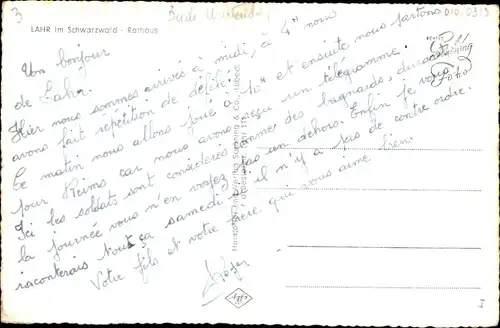 3
Bude Ur
010/0313
LAHR im Schwarzwald - Rathaus
Echte
Foto
Un bonjour
de Lahr.
Hier nous sommes arrivés à midi, à 4h nous
avons fait répétition de défilé
Ce matin nous allons joué "10h" et ensuite nous partons
pour Reims car nous avons reçu un télégramme.
Ici les soldats sont considérés comme des bagnards, durant
la journée vous n'en voyez pas un dehors. Enfin je vous
raconterais tout ça samedi, s'il n'y a pas de contre ordre.
Votre fils et votre frère qui vous aime bien.
Roger
Schöning & Co., Lübeck
I